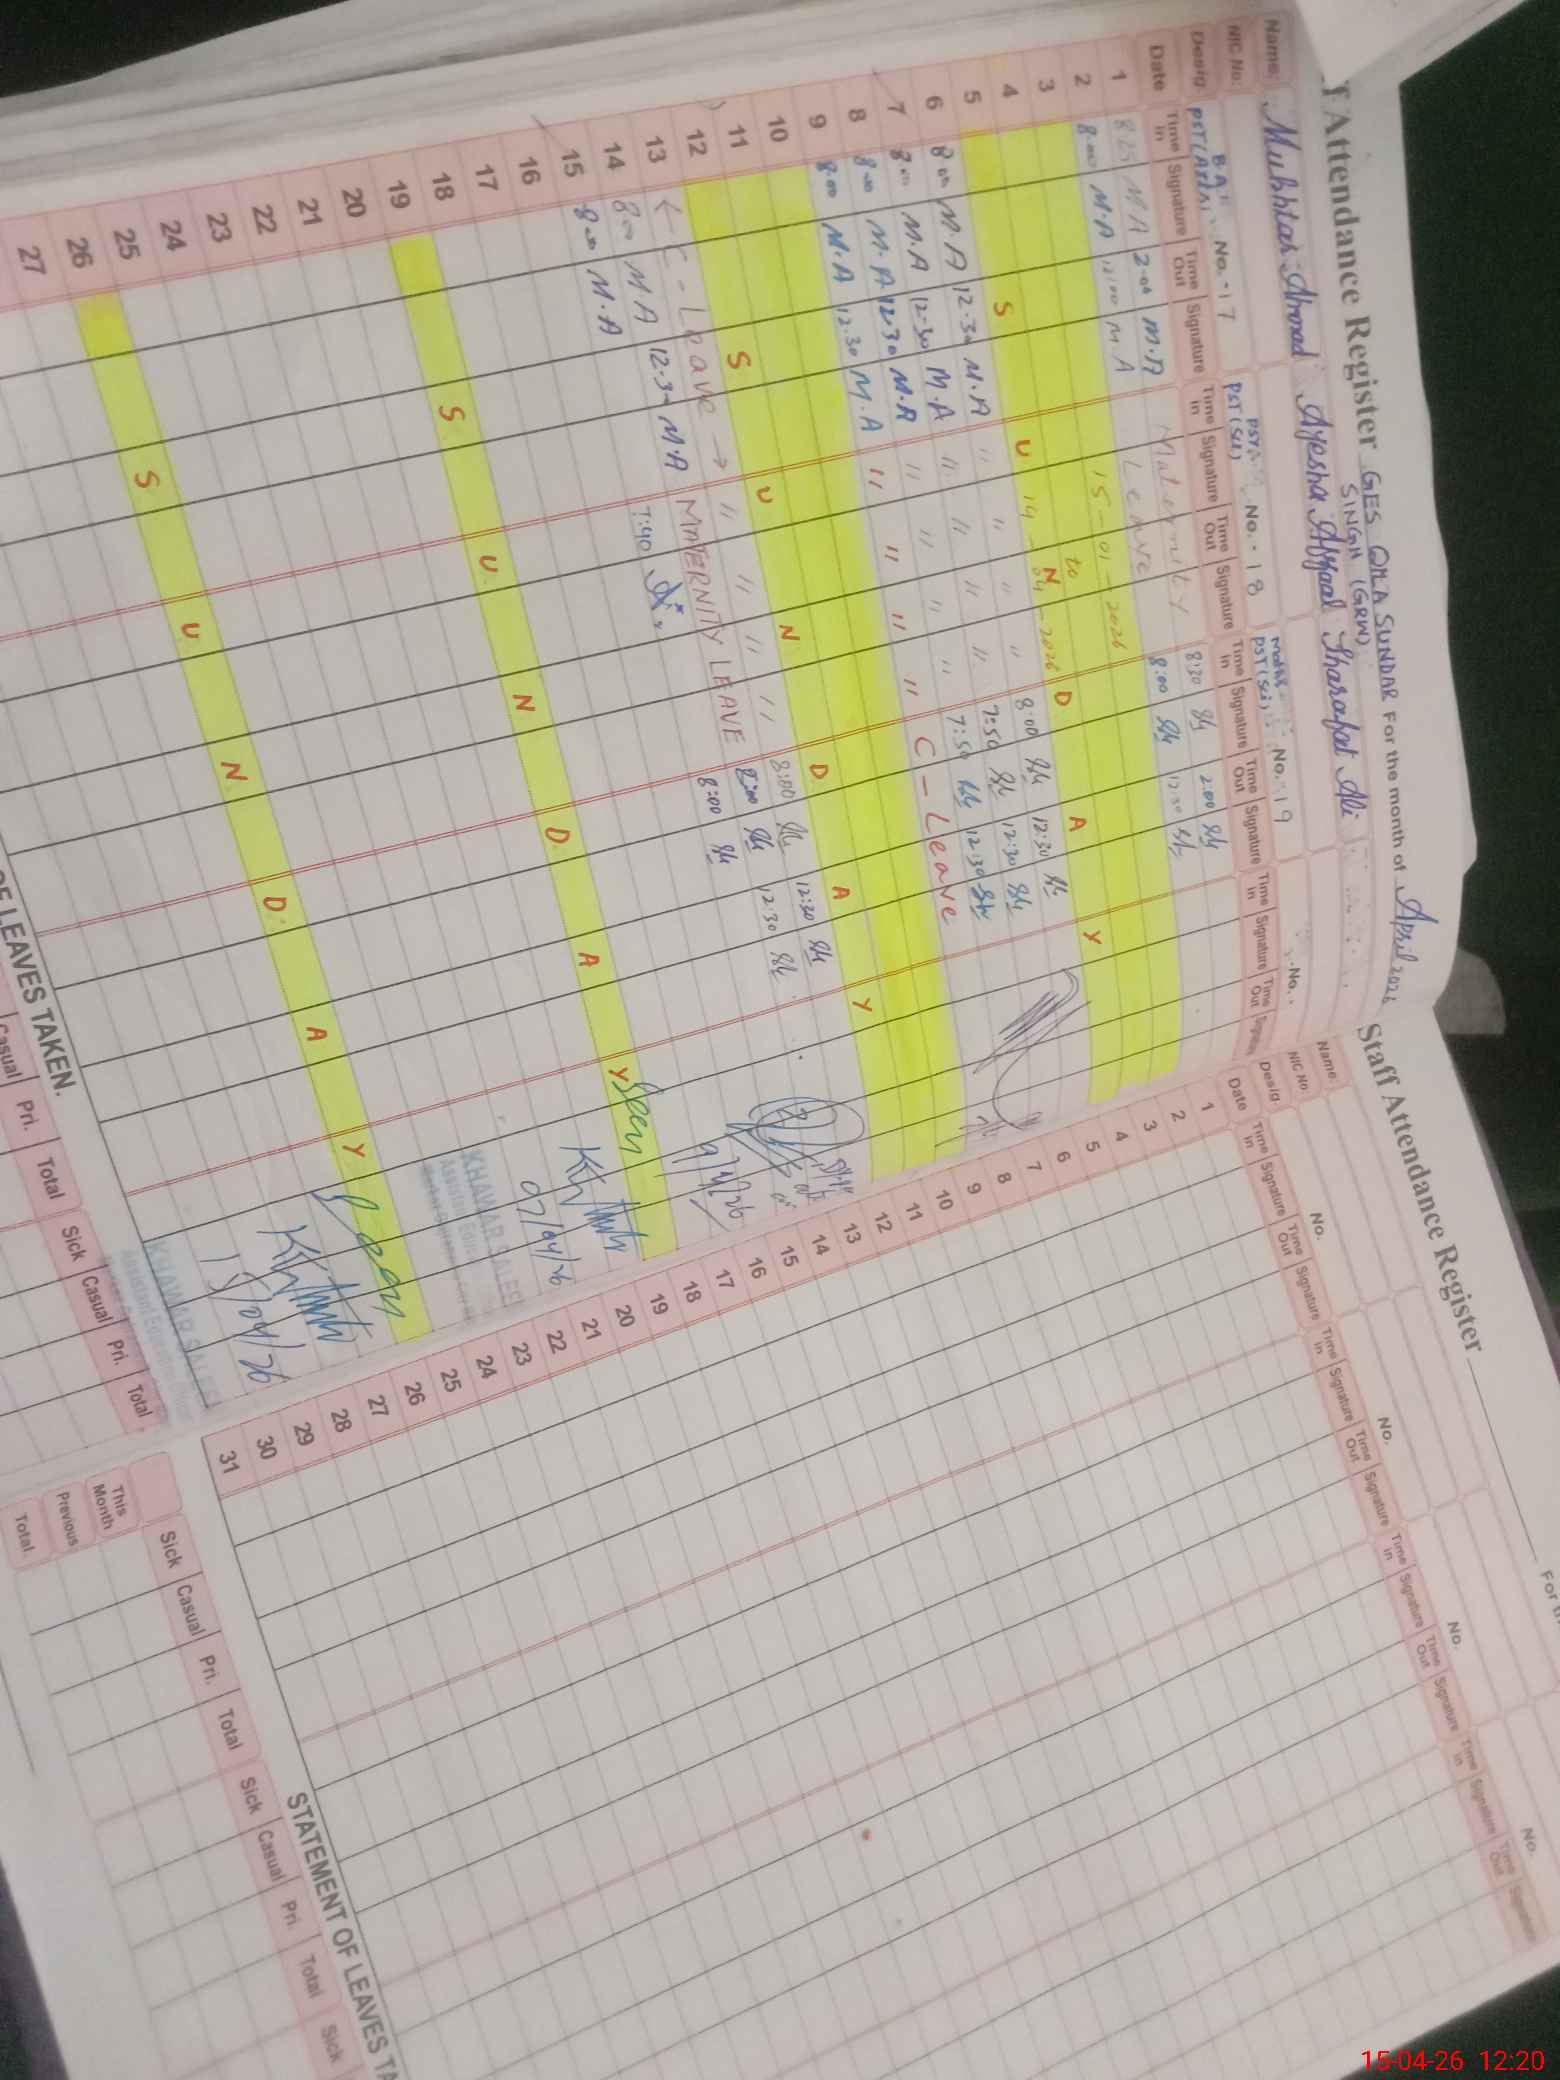 Attendance Register GES QILA SUNDAR SINGH (GRW) For the month of April 2026
Name: Mukhtar Ahmad Ayesha Afzaal Sharafat Ali
NIC No:
Desig. B.A PST(Arts) No. - 17 PST(Sci) No. - 18 Maths PST(Sci) No. 19 No.
Date Time in Signature Time Out Signature Time in Signature Time Out Signature Time in Signature Time Out Signature Time in Signature Time Out Signature
1 8:25 M A 2:00 M.A Maternity 8:30 2:00
2 8:00 M.A 12:00 M A Leave 8:00 12:30
3 15-01-2026
4 to
5 S U N D A Y
14-04-2026
6 8:00 M.A 12:30 M.A " " " " 8:00 12:30
7 8:00 M.A 12:30 M.A " " " " 7:50 12:30
8 8:00 M.A 12:30 M.A " " " " 7:50 12:30
9 8:00 M.A 12:30 M.A " " " " C - Leave
10
11
12 S U N D A Y
13 ← C - Leave → " " " " 8:00 12:30
14 8:00 M A 12:30 M A MATERNITY LEAVE 8:00 12:30
15 8:00 M.A 7:40 8:00
16
17
18
19 S U N D A Y
20
21
22
23
24
25
26 S U N D A Y
27
9/4/26
Seen
07/04/26
KHAWAR SALEE
Seen
15/04/26
KHAWAR SALEE
OF LEAVES TAKEN.
Casual Pri. Total Sick Casual Pri. Total
Staff Attendance Register
For t
Name: No. No. No. No.
NIC No
Desig.
Date Time in Signature Time Out Signature Time in Signature Time Out Signature Time in Signature Time Out Signature Time in Signature Time Out Signature
1
2
3
4
5
6
7
8
9
10
11
12
13
14
15
16
17
18
19
20
21
22
23
24
25
26
27
28
29
30
31
STATEMENT OF LEAVES TA
Sick Casual Pri. Total Sick Casual Pri. Total Sick
This Month
Previous
Total.
15-04-26 12:20